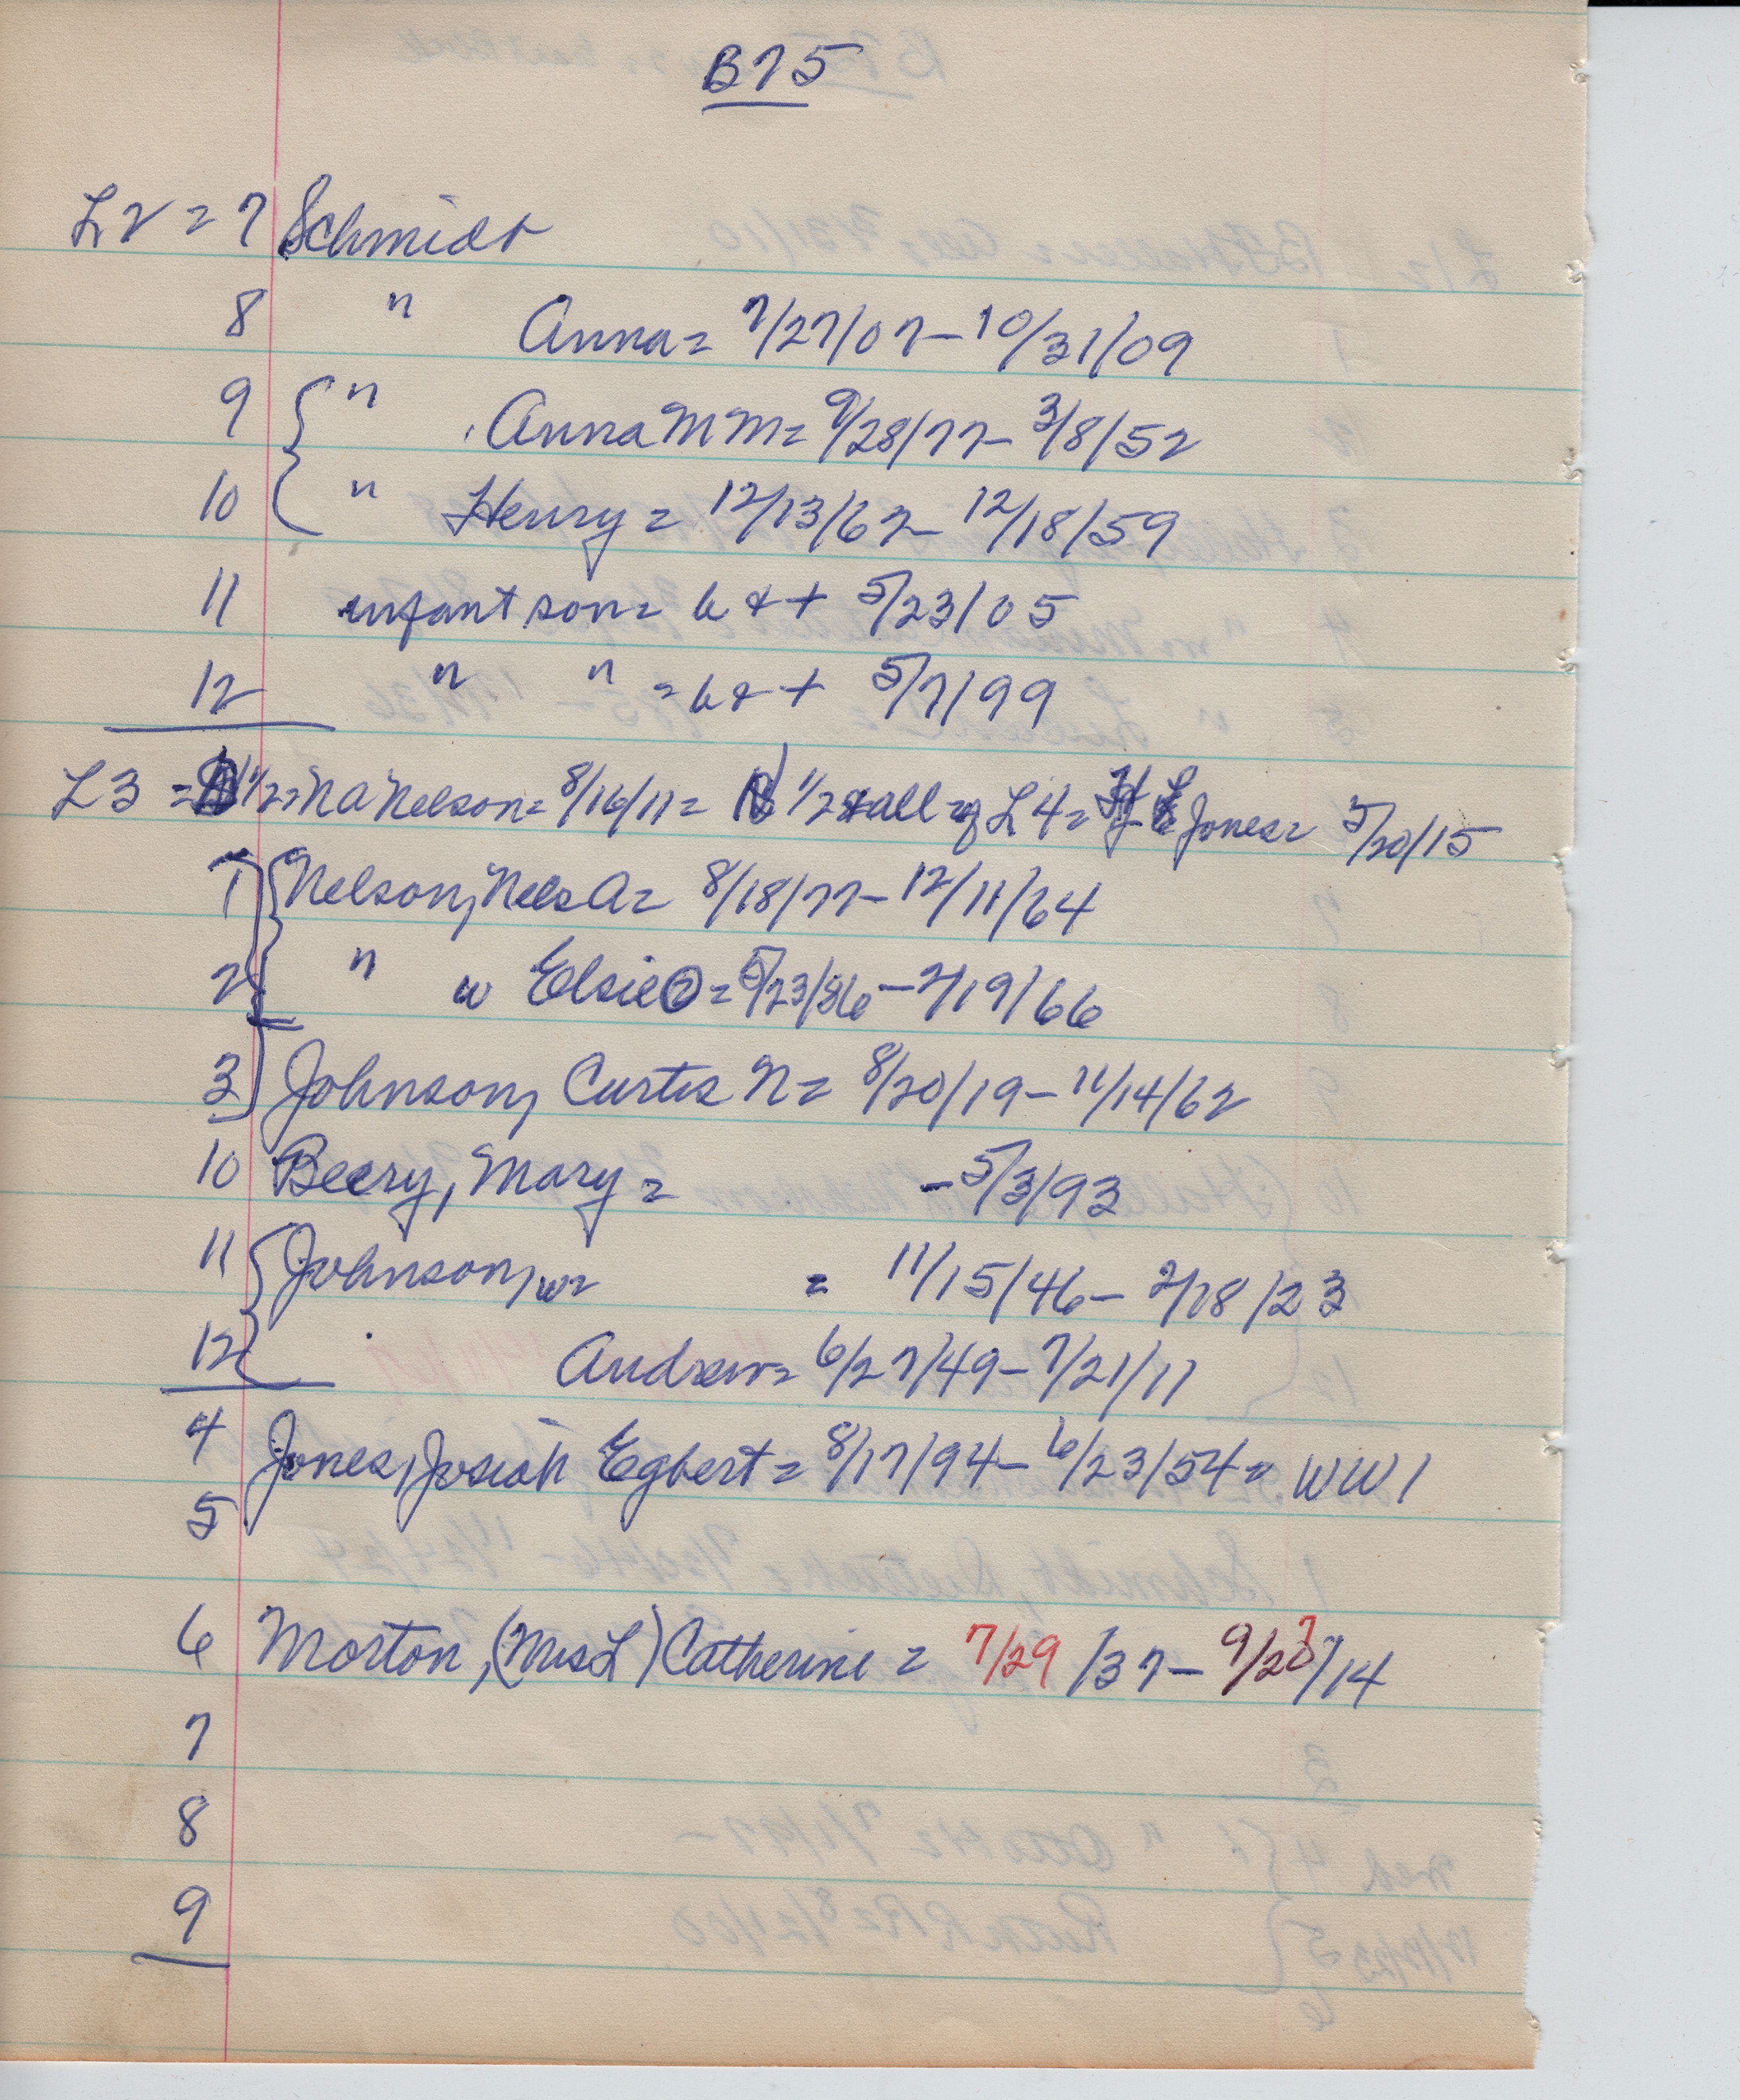 B75
L2 = 7 Schmidt
8 " Anna = 7/27/07 - 10/31/09
9 " Anna M M = 9/28/77 - 3/8/52
10 " Henry = 12/13/62 - 12/18/59
11 infant son = b & + 5/23/05
12 " " = b & + 5/7/99
L3 = 1/2 = N A Nelson = 8/16/11 = N 1/2 & all of L4 = Jones = 5/20/15
1 Nelson, Nels A = 8/18/77 - 12/11/64
2 " w Elsie O = 5/23/86 - 2/19/66
3 Johnson, Curtis N = 8/20/19 - 11/14/62
10 Beery, Mary = - 5/3/93
11 Johnson, w = = 11/15/46 - 2/18/23
12 Andrew = 6/27/49 - 7/21/11
4 Jones, Josiah Egbert = 8/17/94 - 6/23/54 = WW1
5
6 Morton, (Mrs L) Catherine = 7/29/37 - 9/27/14
7
8
9